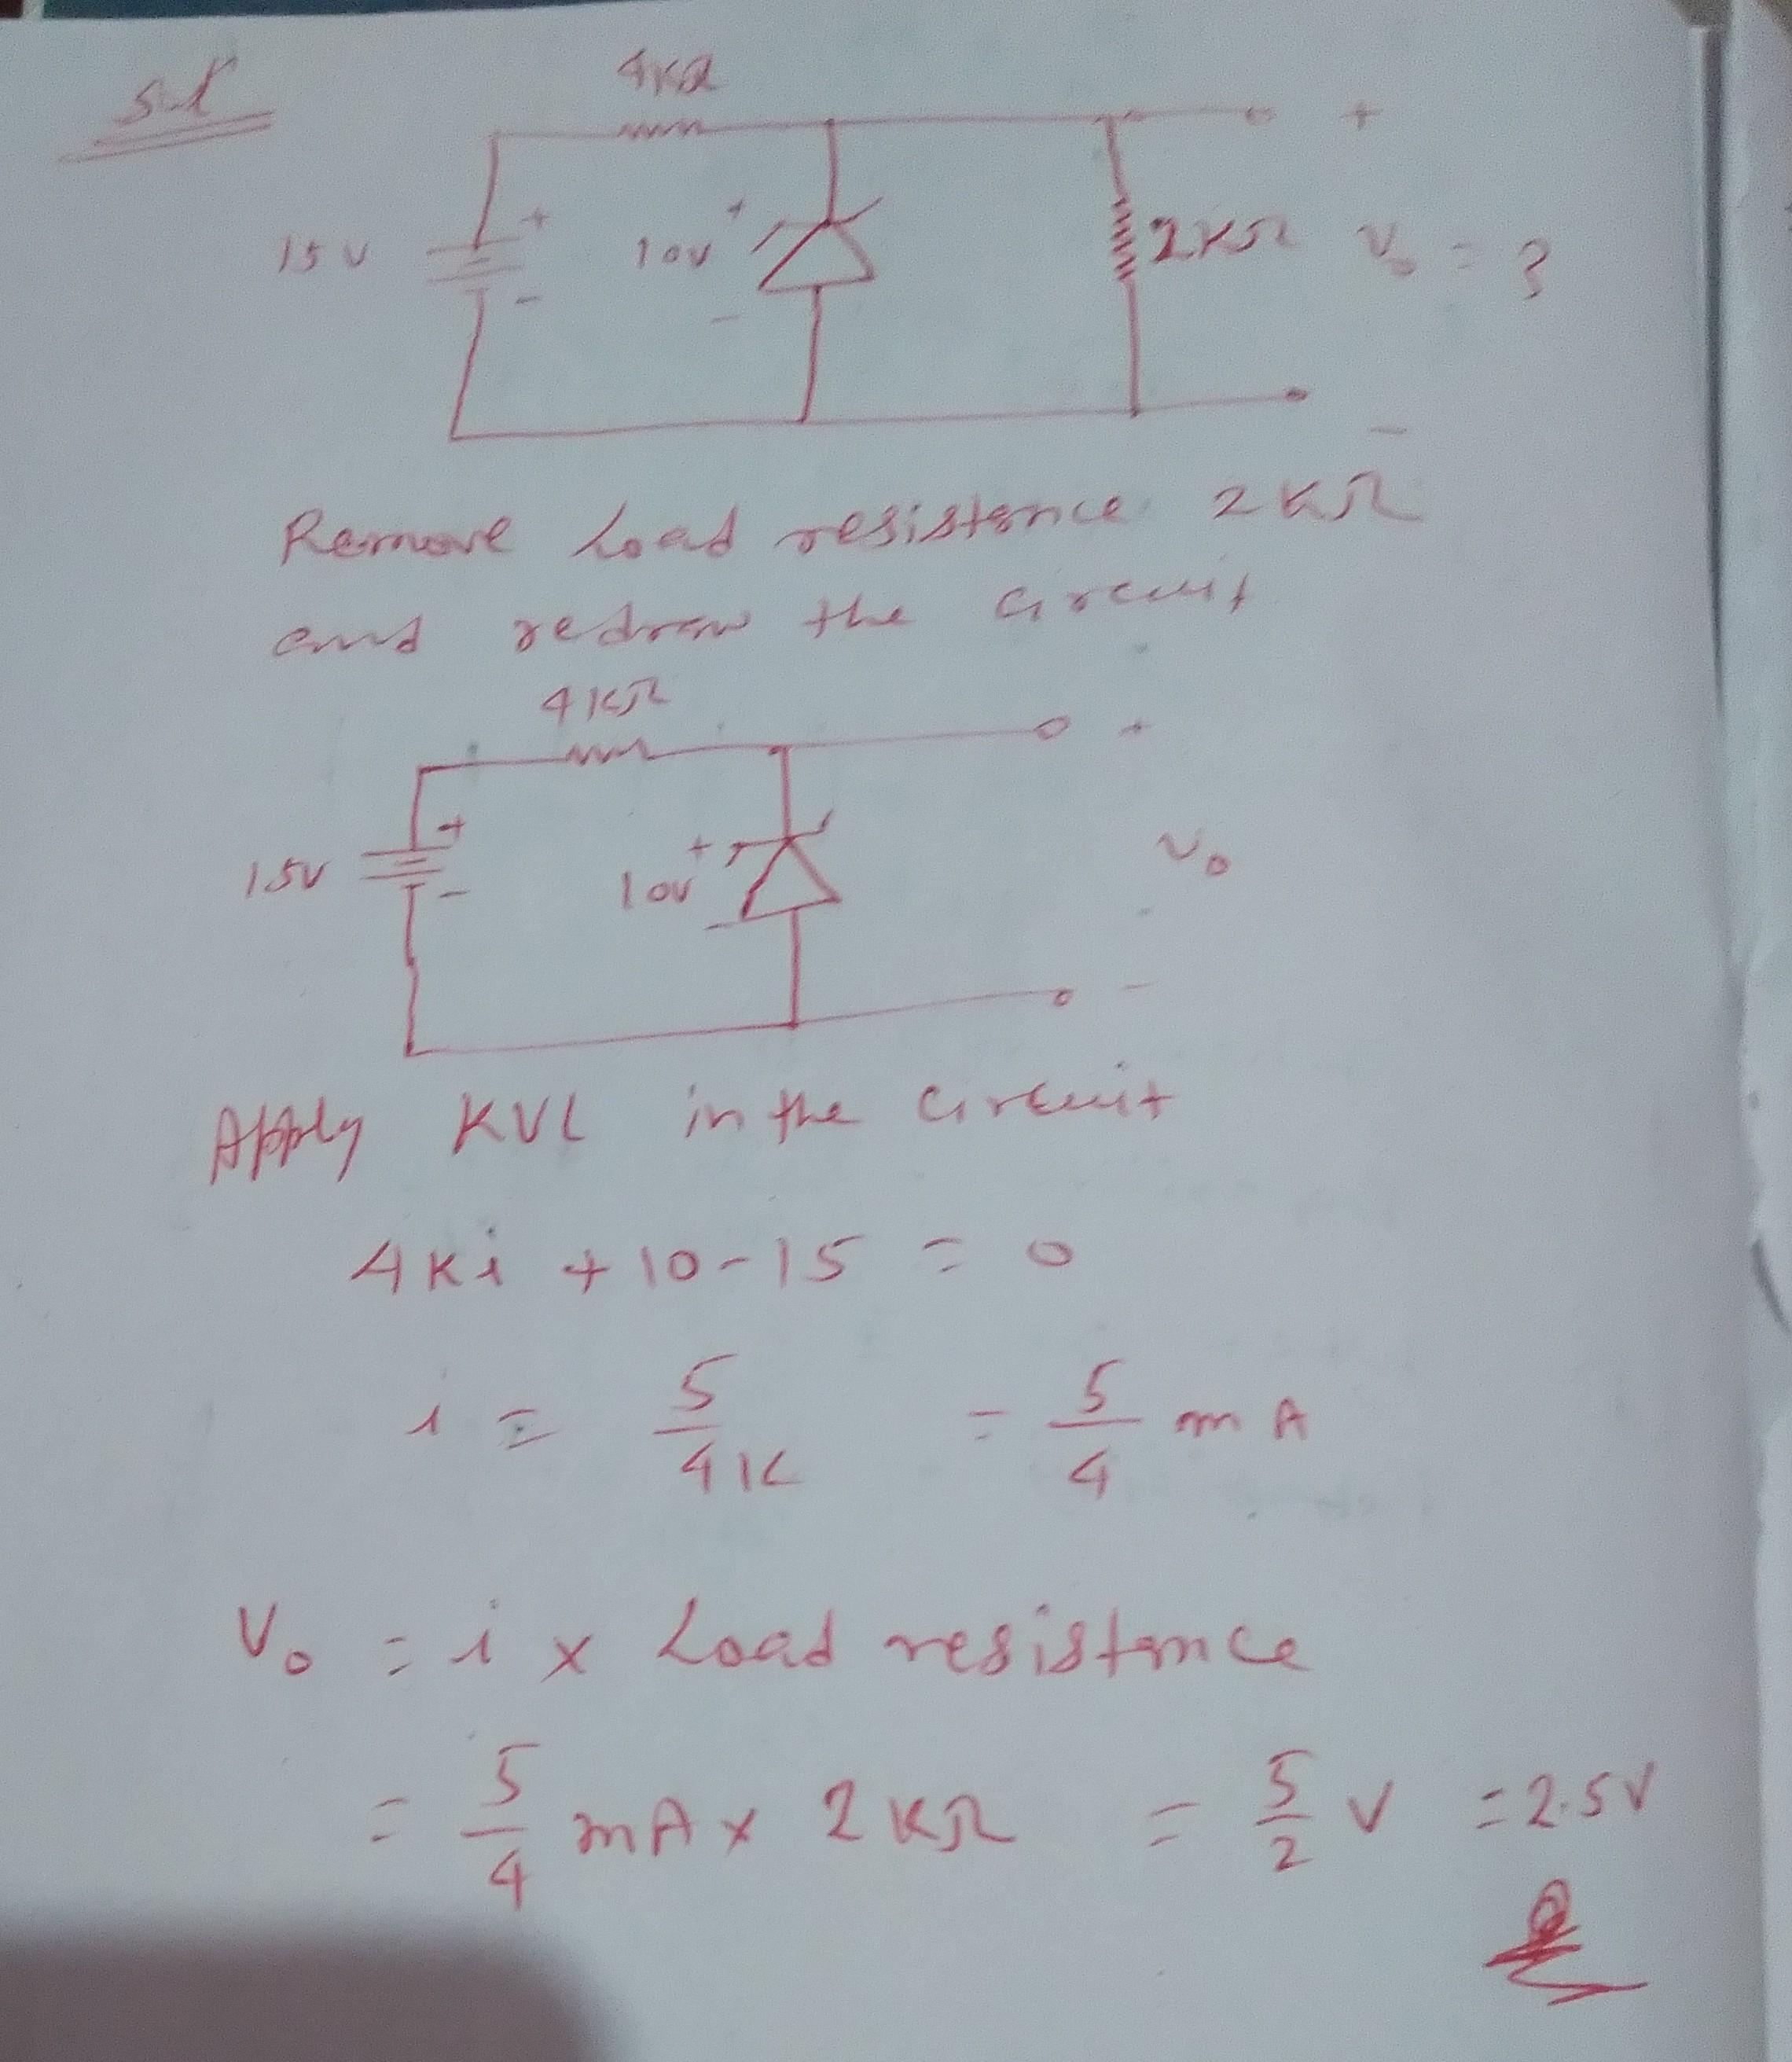 Sol
4KΩ
+
15 V + 10V + 2KΩ V₀ = ?
- -
-
Remove Load resistence 2KΩ
and redraw the circuit
4KΩ
+
15V + - 10V + - V₀
-
Apply KVL in the circuit
4Ki + 10 - 15 = 0
i = 5/4K = 5/4 mA
V₀ = i × Load resistance
= 5/4 mA × 2KΩ = 5/2 V = 2.5V